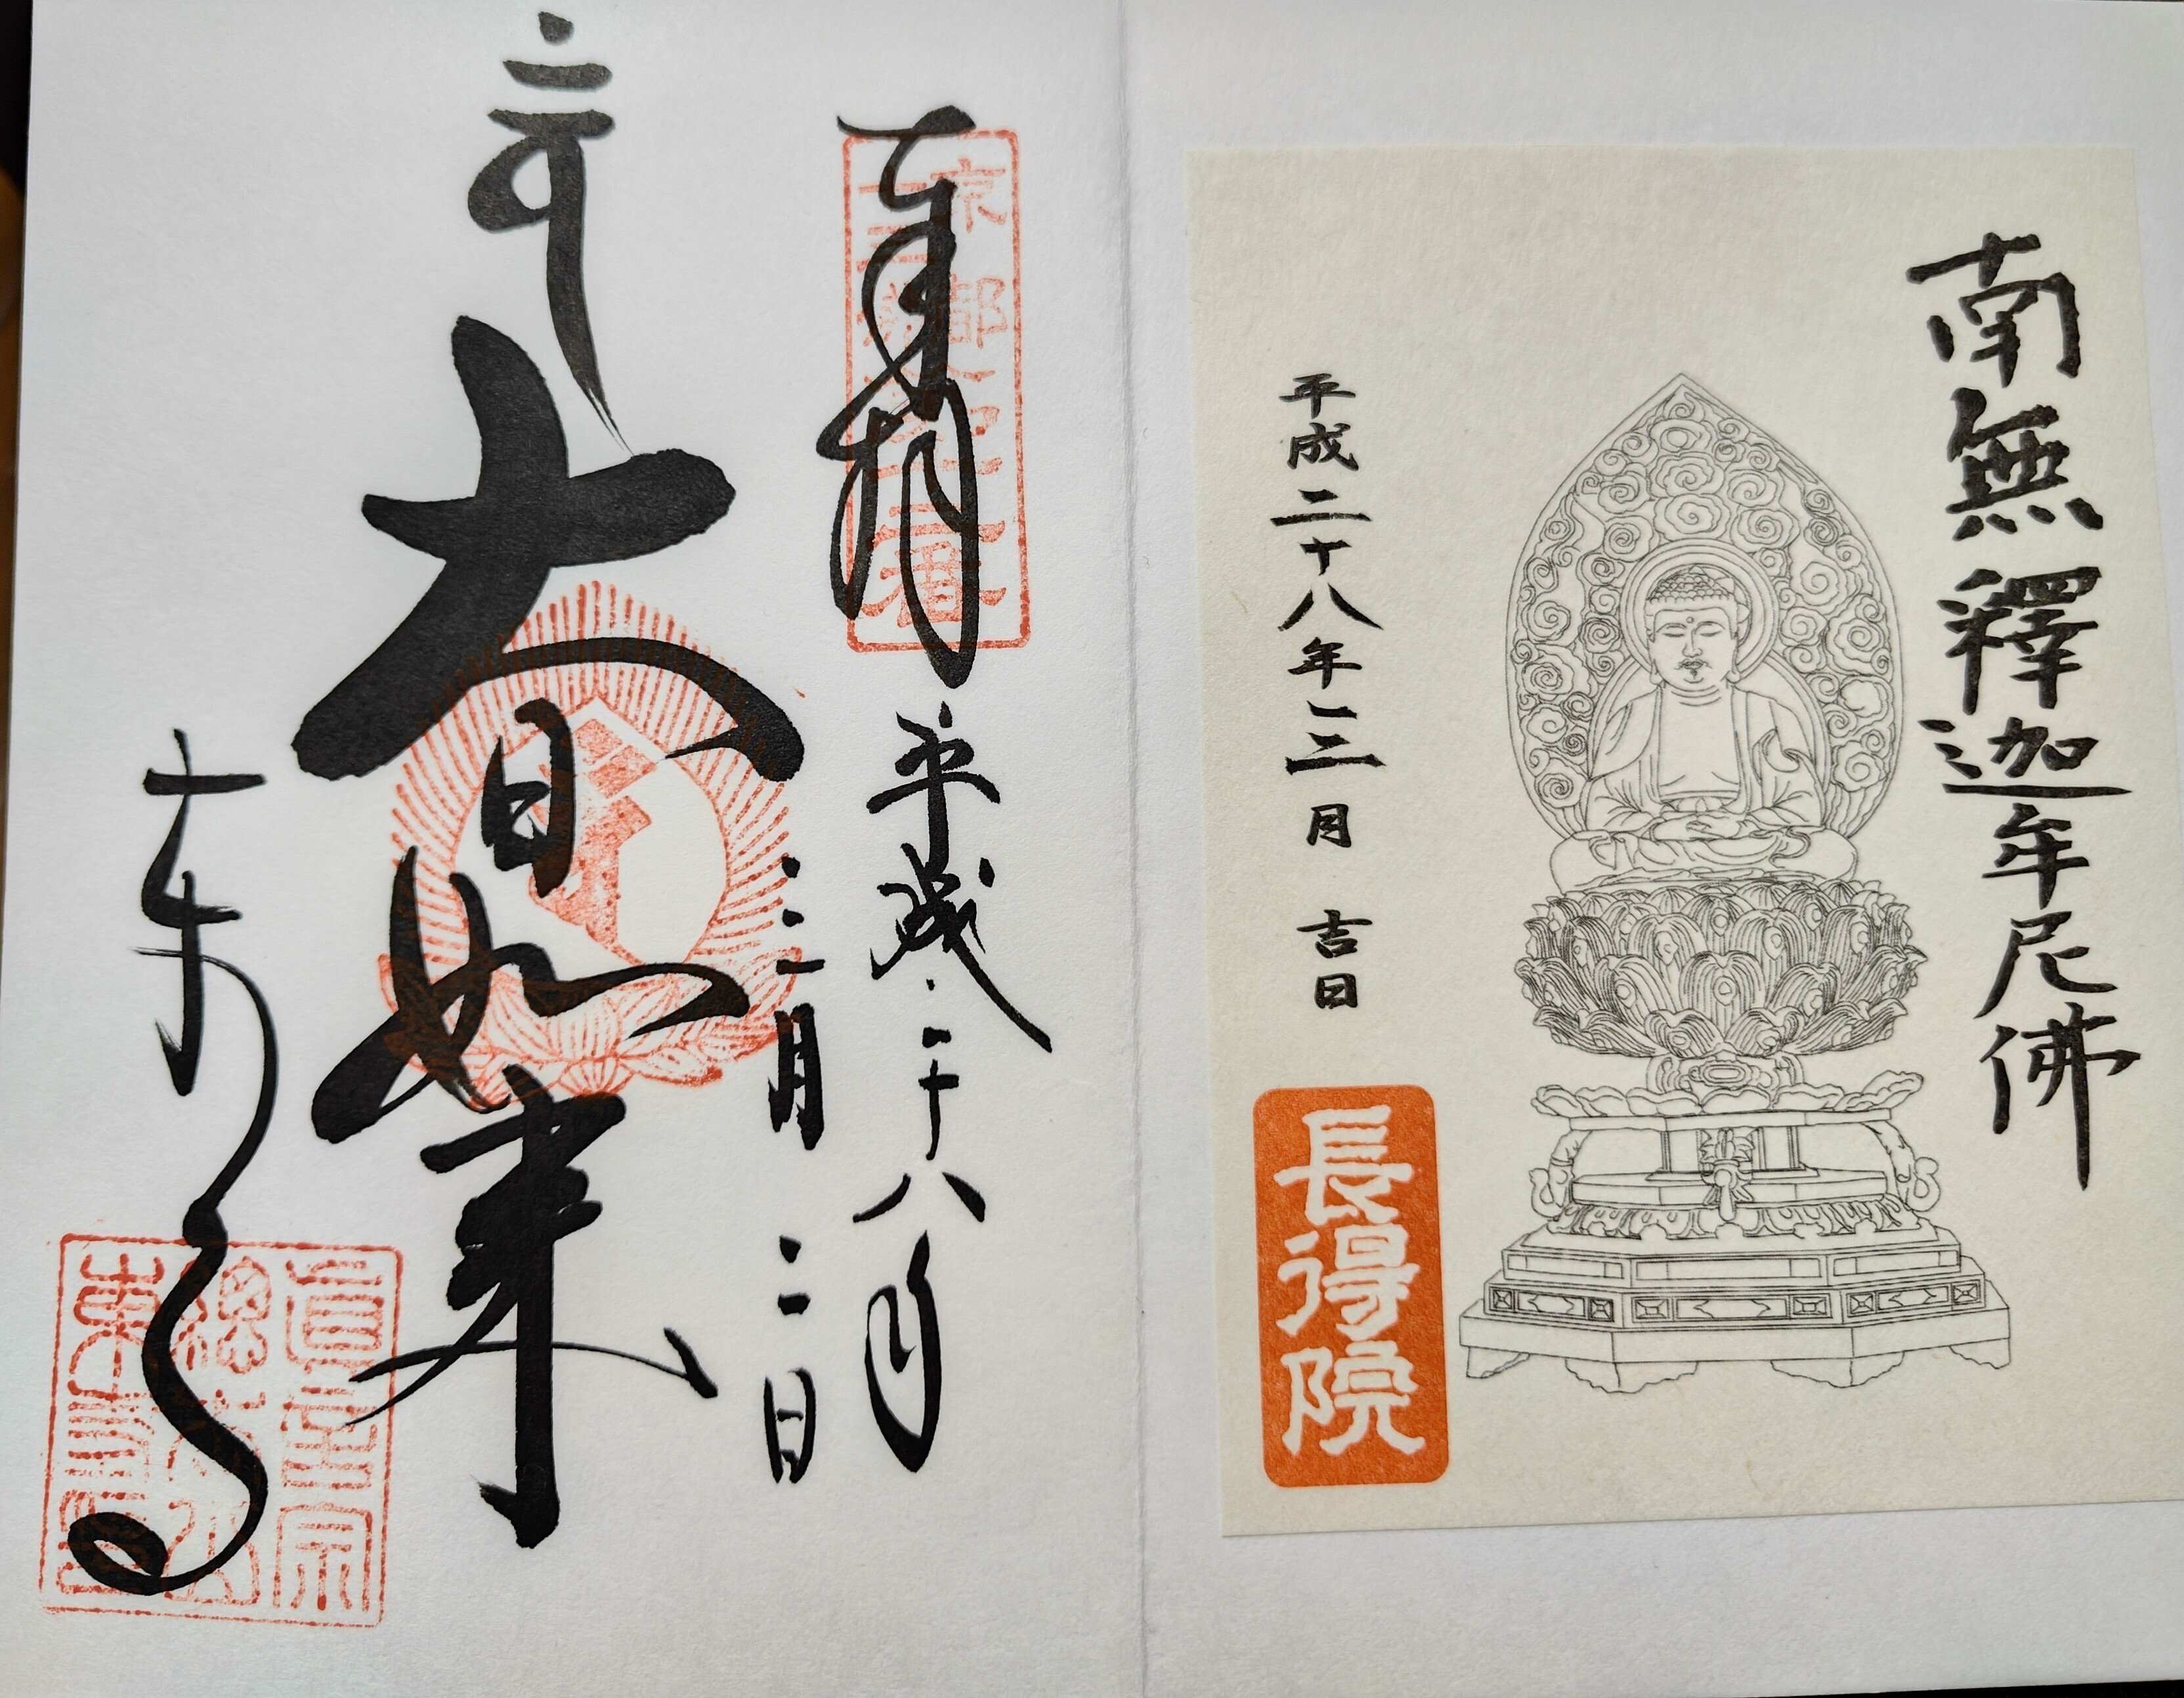 南無釋迦牟尼佛
平成二十八年三月 吉日
長得院
奉拝 平成二十八年
三月二日
大日如来
東寺
眞言宗
總本山